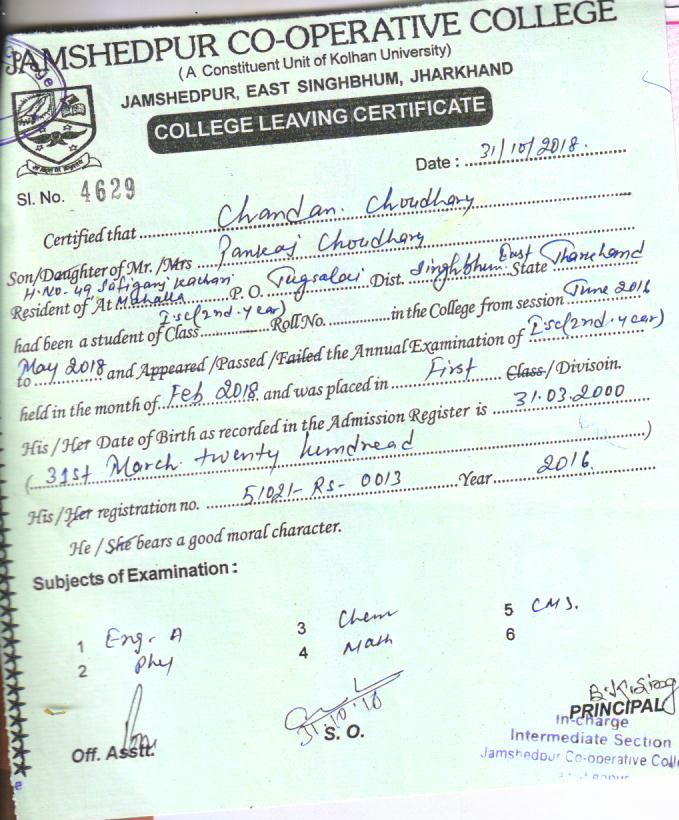 JAMSHEDPUR CO-OPERATIVE COLLEGE
(A Constituent Unit of Kolhan University)
JAMSHEDPUR, EAST SINGHBHUM, JHARKHAND
COLLEGE LEAVING CERTIFICATE
Date : 31/10/2018.
Sl. No. 4629
Certified that Chandan Choudhary
Son/Daughter of Mr. /Mrs Pankaj Choudhary
H. No- 49
Resident of At Mahalla P. O. Jugsalai Dist. Singhbhum East State Jharkhand
had been a student of Class Isc(2nd. year) Roll No. in the College from session June 2016
to May 2018 and Appeared /Passed /Failed the Annual Examination of Isc(2nd. year)
held in the month of Feb 2018 and was placed in First Class/Divisoin.
His / Her Date of Birth as recorded in the Admission Register is 31.03.2000
( 31st March twenty hundread )
His / Her registration no. 51021- RS- 0013 Year 2016.
He / She bears a good moral character.
Subjects of Examination :
1 Eng- A 3 Chem 5 CMS.
2 Phy 4 Math 6
31.10.18
Off. Asstt. S. O. PRINCIPAL
In-charge
Intermediate Section
Jamshedpur Co-operative Coll